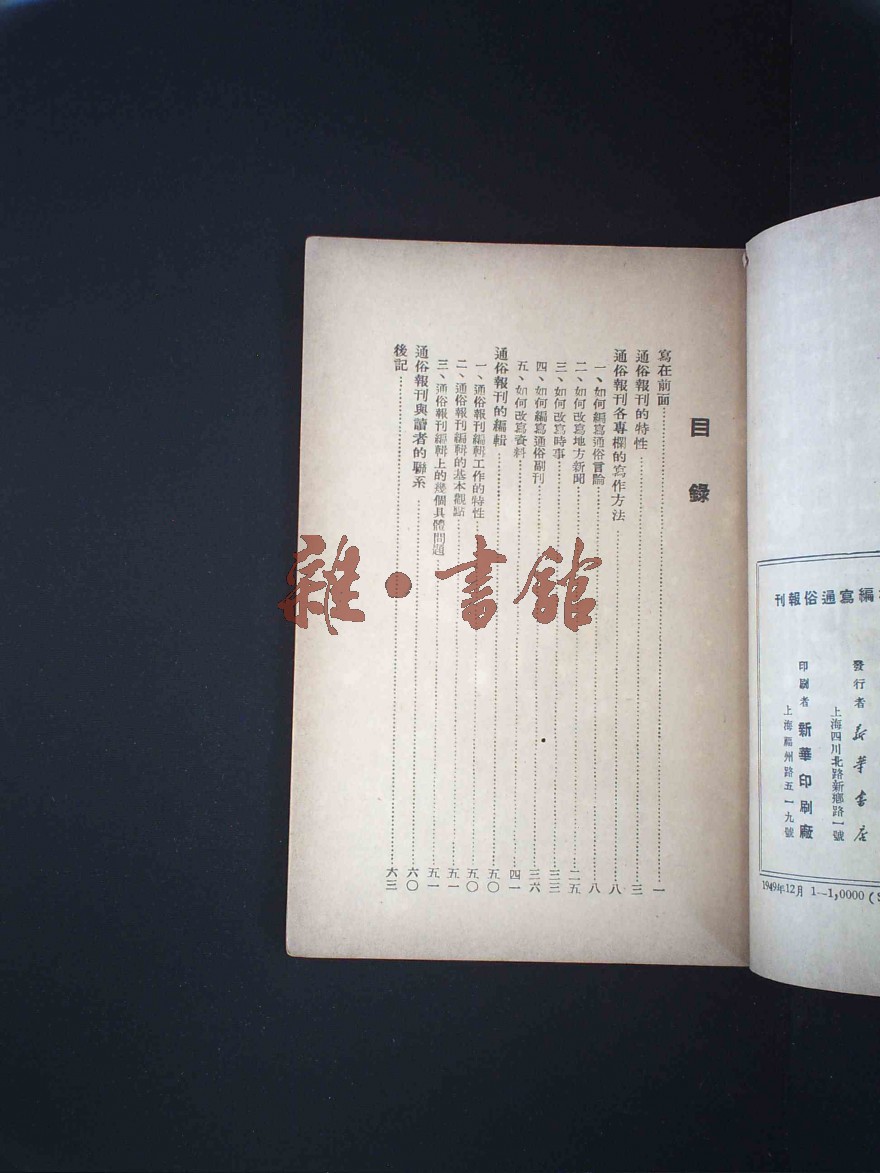 目錄
寫在前面……一
通俗報刊的特性……三
通俗報刊各專欄的寫作方法……八
一、如何編寫通俗言論……八
二、如何改寫地方新聞……二五
三、如何改寫時事……三三
四、如何編寫通俗副刊……三六
五、如何改寫資料……四一
通俗報刊的編輯……五〇
一、通俗報刊編輯工作的特性……五〇
二、通俗報刊編輯的基本觀點……五一
三、通俗報刊編輯上的幾個具體問題……五一
通俗報刊與讀者的聯系……六〇
後記……六三
雜·書館
編寫通俗報刊
發行者 新華書店
上海四川北路新鄉路一號
印刷者 新華印刷廠
上海福州路五一九號
1949年12月 1—1,0000 (